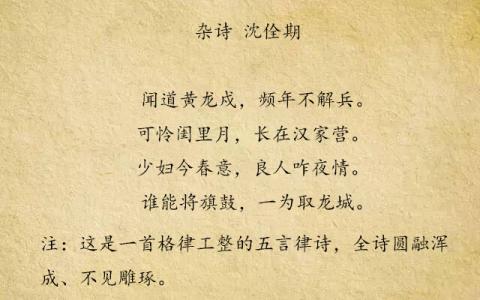 杂诗 沈佺期
闻道黄龙戍，频年不解兵。
可怜闺里月，长在汉家营。
少妇今春意，良人咋夜情。
谁能将旗鼓，一为取龙城。
注：这是一首格律工整的五言律诗，全诗圆融浑
成、不见雕琢。